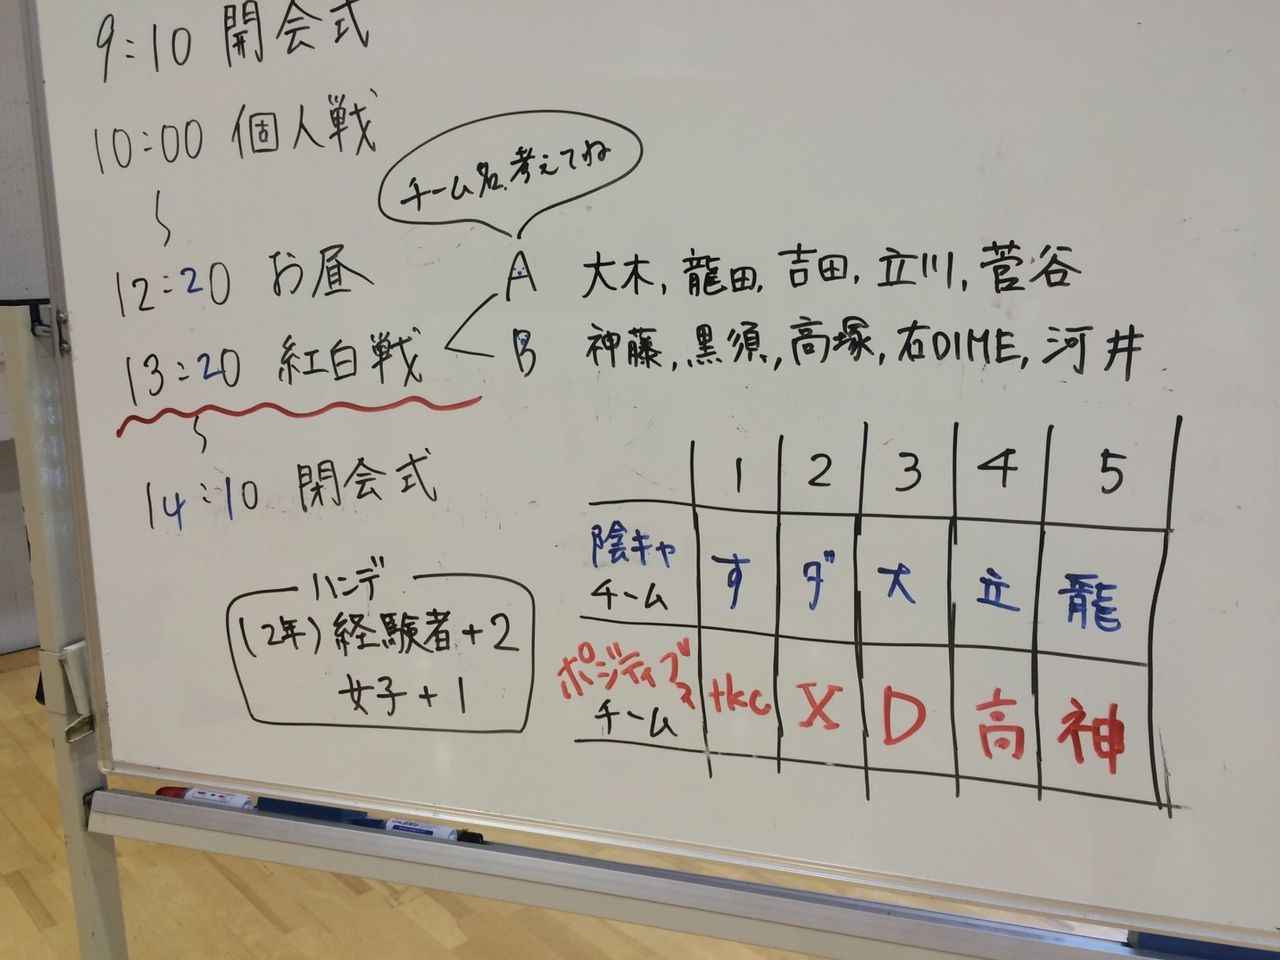 9:10 開会式
10:00 個人戦
〜
チーム名、考えてね
12:20 お昼
13:20 紅白戦
A 大木, 龍田, 吉田, 立川, 菅谷
B 神藤, 黒須, 高塚, 右DIME, 河井
〜
14:10 閉会式
ハンデ
(2年) 経験者 +2
女子 +1
1 2 3 4 5
陰キャチーム す ダ 大 立 龍
ポジティブスチーム tkc X D 高 神